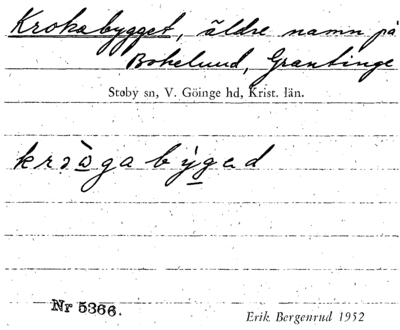 Krokabygget, äldre namn på
Bokelund, Grantinge
Stoby sn, V. Göinge hd, Krist. län.
krɔ̀a̱gabẏ̱gəd
Nr 5366.
Erik Bergenrud 1952